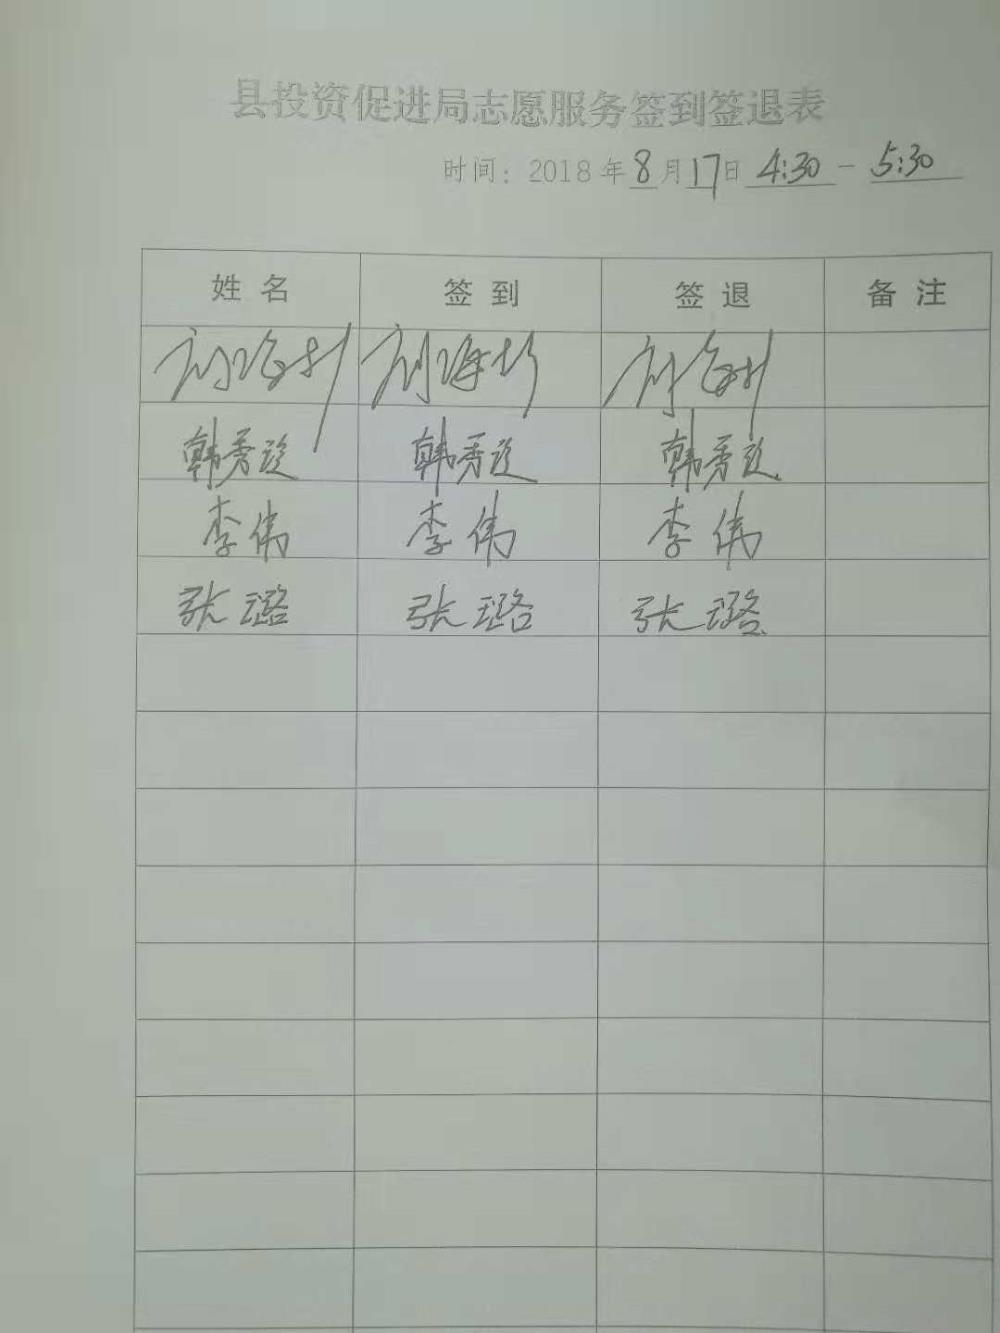 县投资促进局志愿服务签到签退表
时间：2018年8月17日 4:30-5:30
姓名 签到 签退 备注
韩秀 韩秀 韩秀
李伟 李伟 李伟
张璐 张璐 张璐